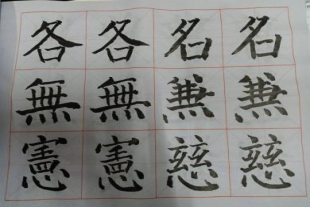 各各名名
無無兼兼
憲憲慈慈